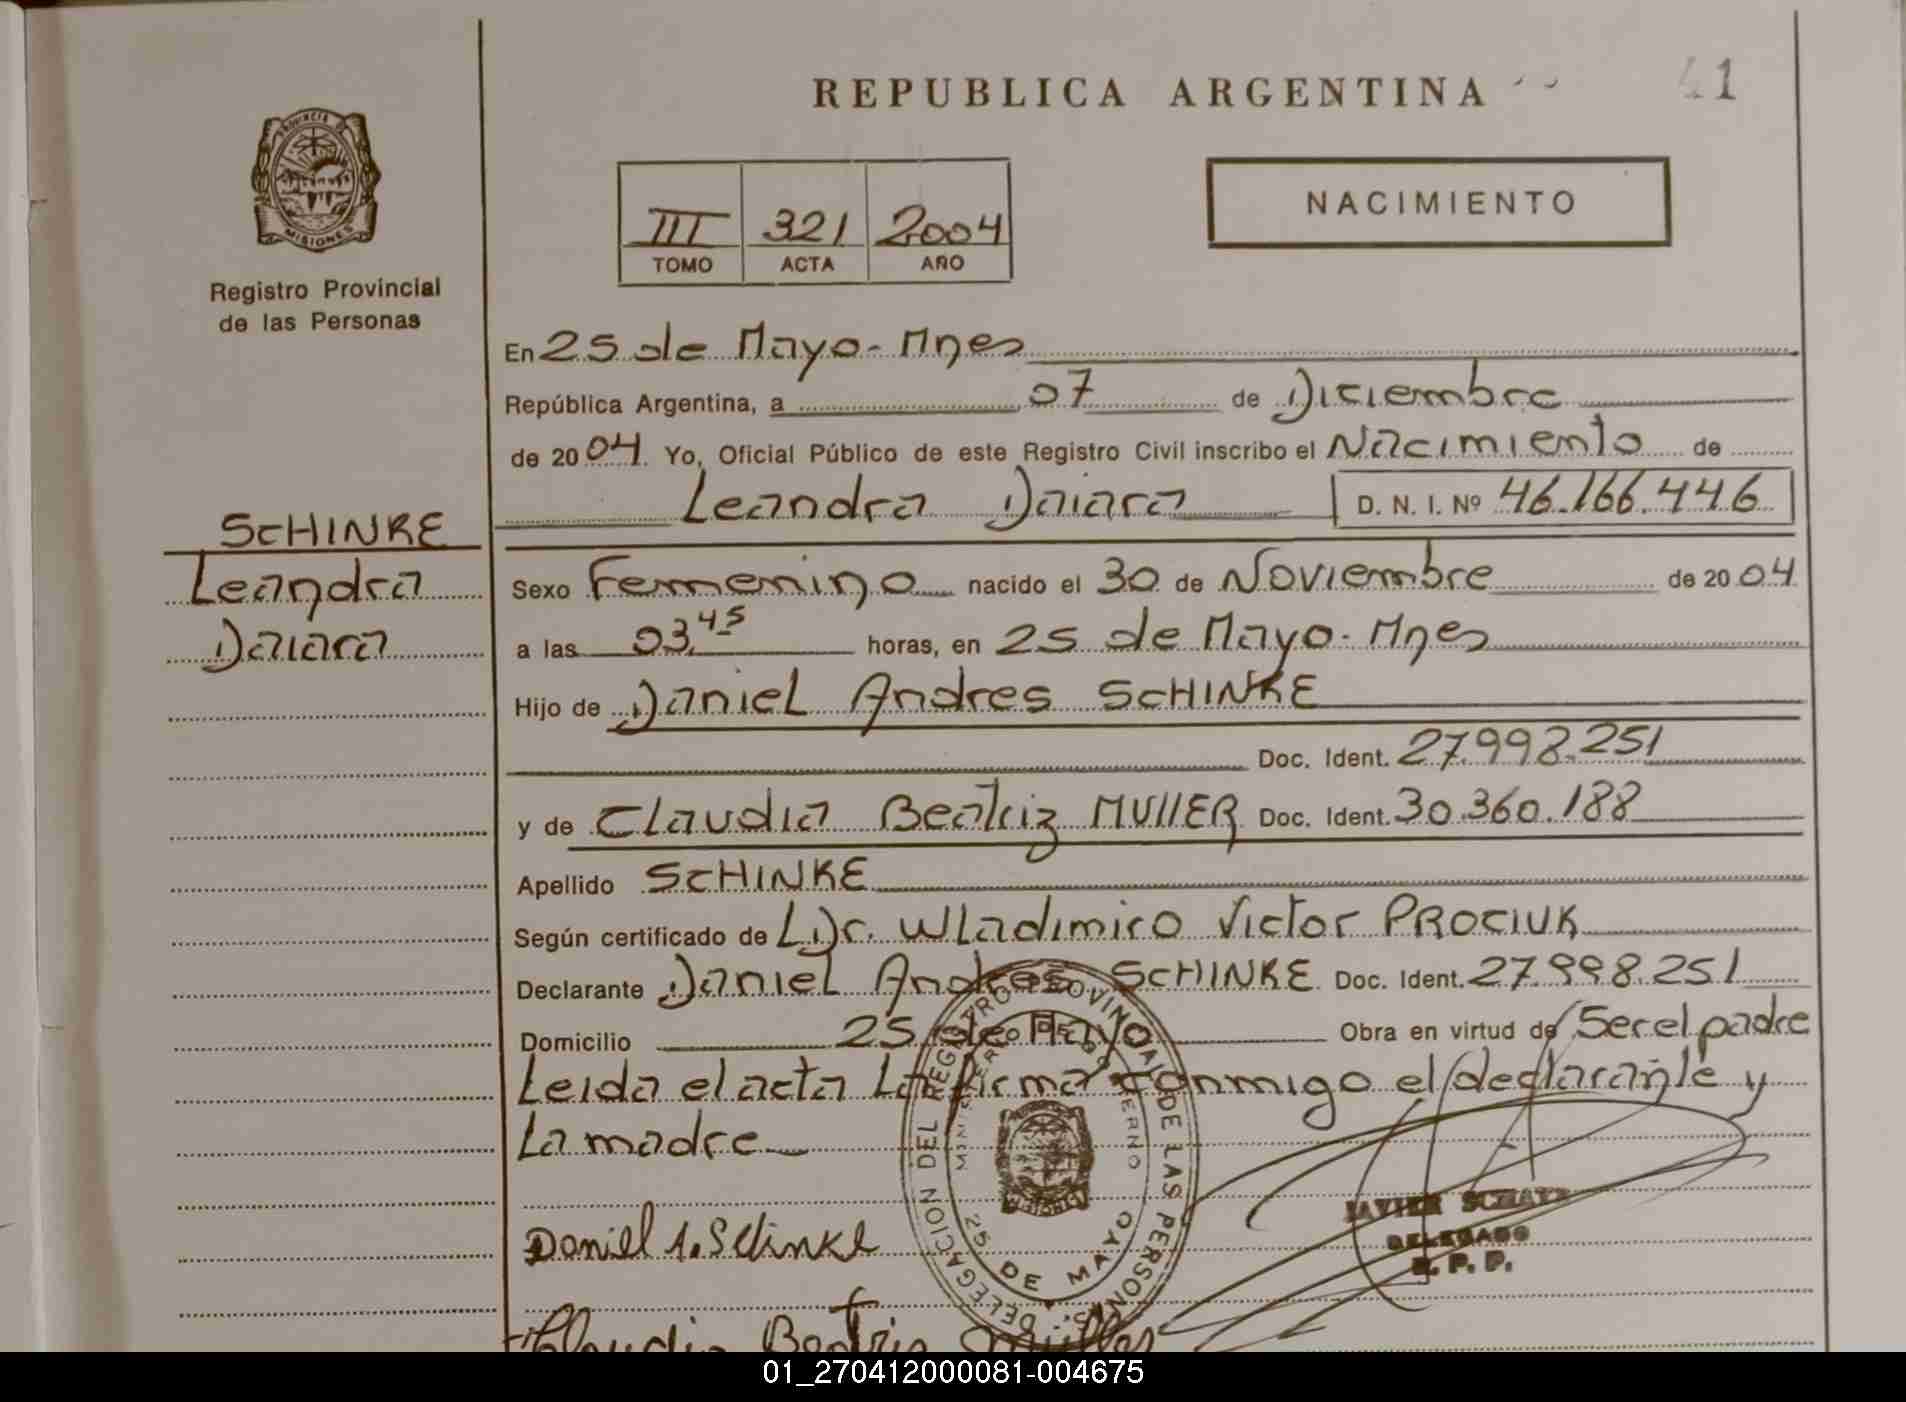 REPUBLICA ARGENTINA
41
PROVINCIA DE
MISIONES
Registro Provincial
de las Personas
NACIMIENTO
III 321 2004
TOMO ACTA AÑO
En 25 de Mayo - Mnes
República Argentina, a 07 de Diciembre
de 2004. Yo, Oficial Público de este Registro Civil inscribo el Nacimiento de
Leandra Daiara D. N. I. Nº 46.166.446
SCHINKE
Leandra
Daiara
Sexo Femenino nacido el 30 de Noviembre de 2004
a las 03.45 horas, en 25 de Mayo - Mnes
Hijo de Daniel Andres SCHINKE
Doc. Ident. 27.998.251
y de Claudia Beatriz MULLER Doc. Ident. 30.360.188
Apellido SCHINKE
Según certificado de L Dr. Wladimiro Victor PROCIUK
Declarante Daniel Andres SCHINKE Doc. Ident. 27.998.251
Domicilio 25 de Mayo Obra en virtud de Ser el padre
Leida el acta La firma conmigo el declarante y
La madre
DELEGACION DEL REGISTRO PROVINCIAL DE LAS PERSONAS
MINISTERIO DE GOBIERNO
25 DE MAYO
Daniel A. Schinke
JAVIER
DELEGADO
R. P. P.
Claudia Beatriz Muller
01_270412000081-004675